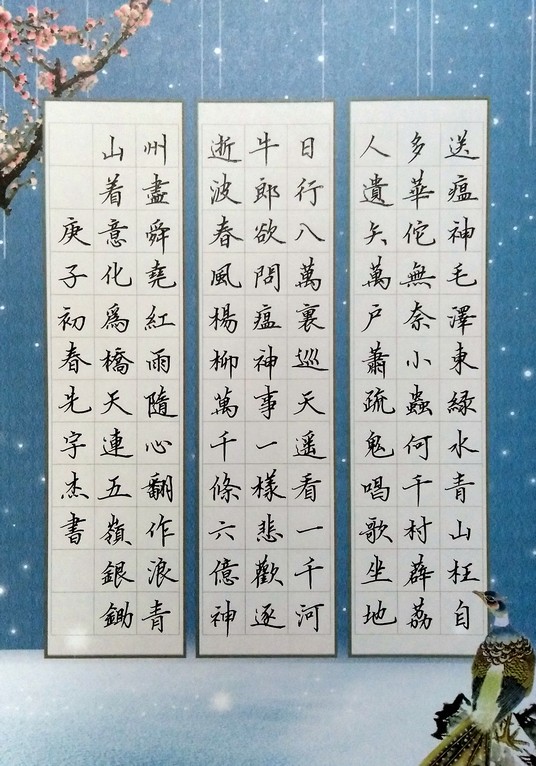 送瘟神毛澤東綠水青山枉自
多華佗無奈小蟲何千村薜荔
人遺矢萬戶蕭疏鬼唱歌坐地
日行八萬裏巡天遥看一千河
牛郎欲問瘟神事一樣悲歡逐
逝波春風楊柳萬千條六億神
州盡舜堯紅雨隨心翻作浪青
山着意化爲橋天連五嶺銀鋤
庚子初春先字杰書